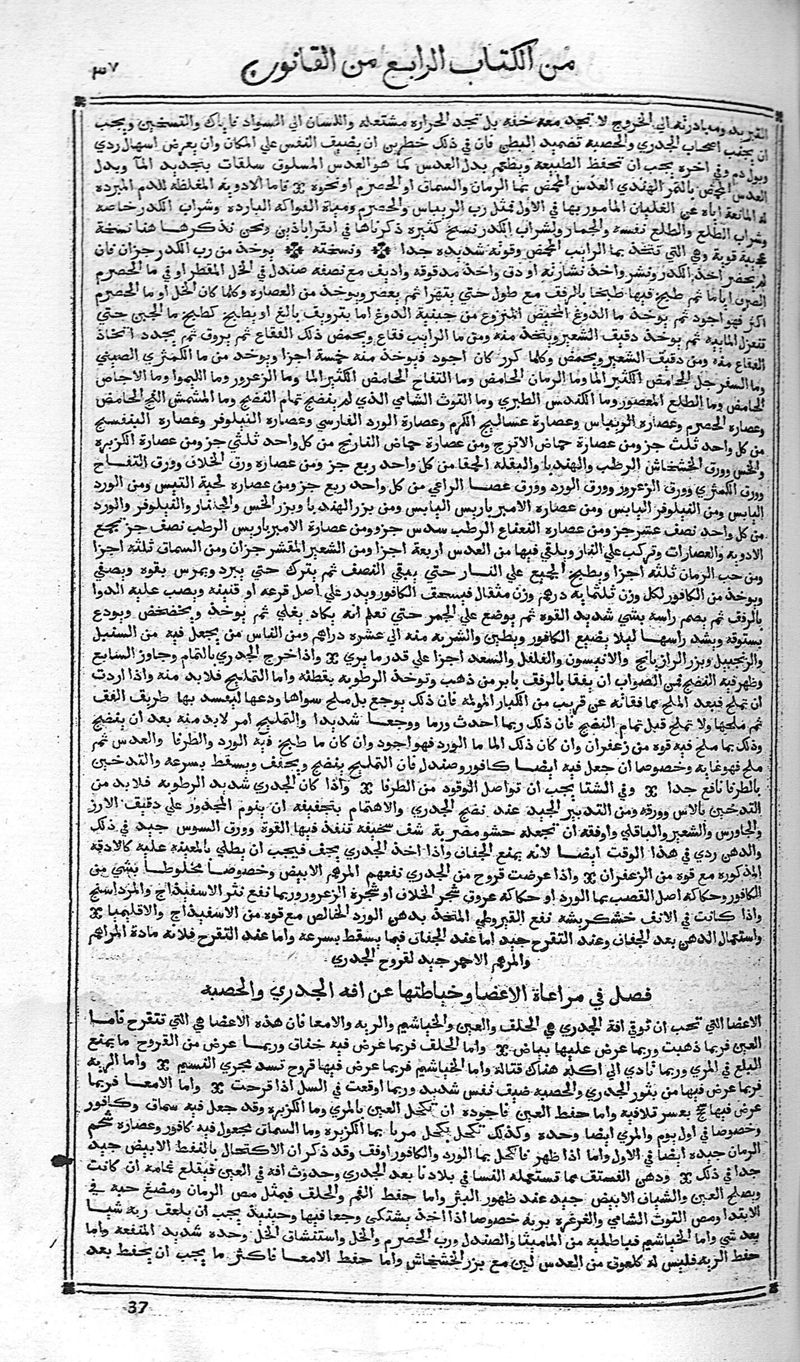 من الكتاب الرابع من القانون
٣٧
التبريد ومبادرته الي الخروج لا تجد معه خفه بل تجد الحراره مشتعله واللسان الي السواد فاياك والتسخين ويجب
ان يجنب اصحاب الجدري والحصبه تضميد البطن فان في ذلك خطرين ان يضيف النفس علي المكان وان يعرض اسهال ردي
وبول دم وفي اخره يجب ان تحفظ الطبيعه ويطعم بدل العدس كما هو العدس المسلوق سلقات بتجديد الما وبدل
العدس المحمض بالتمر الهندي العدس المحمض بما الرمان والسماق او الحصرم ونحوه فاما الادويه المغلظه للدم المبرده
له المانعة اياه عن الغليان المامور بها في الاول فمثل رب الريباس والحصرم ومياة الفواكه البارده وشراب الكدر خاصه
وشراب الطلع والطلع نفسه والجمار ولشراب الكدر نسخ كثيره ذكرناها في اقراباذين ونحن نذكرها هنا نسخة
عجيبة قوية وهي التي تتخذ بما الرايب المحمض وقوته شديده جدا ونسخته يوخذ من رب الكدر جزان فان
لم يحضر اخذ الكدر ونشر واخذ نشارته او دق واخذ مدقوقه واديف مع نصفه صندل في الخل المقطر او في ما الحصرم
الصرف اياما ثم طبخ فيها طبخا بالرفق مع طول حتي يتهرا ثم يعصر ويوخذ من العصاره وكلما كان الخل او ما الحصرم
اكثر فهو اجود ثم يوخذ ما الدوغ المخيض المنزوع من جبنية الدوغ اما بترويق بالغ او بطبخ كطبخ ما الجبن حتي
تنعزل المايه ثم يوخذ دقيق الشعير ويتخذ منه ومن ما الرايب فقاع ويحمض ذلك الفقاع ثم يروق ثم يجدد اتخاذ
الفقاع منه ومن دقيق الشعير ويحمض وكلما كرر كان اجود فيوخذ منه خمسة اجزا ويوخذ من ما الكمثري الصيني
وما السفرجل الحامض الكثير الما وما الرمان الحامض وما التفاح الحامض الكثير الما وما الزعرور وما الليموا وما الاجاص
الحامض وما الطلع المعصور وما الكندس الطبري وما التوث الشامي الذي لم ينضج تمام النضج وما المشمش الفج الحامض
وعصاره الحصرم وعصاره الريباس وعصارة عساليج الكرم وعصارة الورد الفارسي وعصاره النيلوفر وعصارة البنفسج
من كل واحد ثلث جز ومن عصارة حماض الاترج ومن عصارة حماض النارنج من كل واحد ثلثي جز ومن عصارة الكزبره
والخس وورق الخشخاش الرطب والهندبا والبقله الحمقا من كل واحد ربع جز ومن عصاره ورق الخلاف وورق التفاح
وورق الكمثري وورق الزعرور وورق الورد وورق عصا الراعي من كل واحد ربع جز ومن عصارة لحية التيس ومن الورد
اليابس ومن النيلوفر اليابس ومن عصاره الامبرباريس اليابس ومن بزر الهندبا وبزر الخس والجلنار والنيلوفر والورد
من كل واحد نصف عشر جز ومن عصاره النعناع الرطب سدس جز ومن عصارة الامبرباريس الرطب نصف جز يجمع
الادويه والعصارات وتركب علي النار ويلقي فيها من العدس اربعة اجزا ومن الشعير المقشر جزان ومن السماق ثلثه اجزا
ومن حب الرمان ثلثه اجزا ويطبخ الجميع علي النار حتي يبقي النصف ثم يترك حتي يبرد ويمرس بقوه ويصفي
ويوخذ من الكافور لكل وزن ثلثماية درهم وزن مثقال فيسحق الكافور ويذر علي اصل قرعه او قنينه ويصب عليه الدوا
بالرفق ثم يصم راسه بشي شديد القوه ثم يوضع علي الجمر حتي تعلم انه يكاد يغلي ثم يوخذ ويخضخض ويودع
بستوقه ويشد راسها ليلا يضيع الكافور ويطين والشربه منه الي عشره دراهم ومن الناس من يجعل فيه من السنبل
والزنجبيل وبزر الرازيانج والانيسون والفلفل والسعد اجزا علي قدر ما يري واذا خرج الجدري بالتمام وجاوز السابع
وظهر فيه النضج فمن الصواب ان يفقا بالرفق بابر من ذهب وتوخذ الرطوبه بقطنه واما التمليح فلابد منه واذا اردت
ان تملح فبعد الملح مما فقاته عن قريب من الكبار المولمه فان ذلك يوجع بل ملح سواها ودعها ليفسد بها طريق الفق
ثم ملحها ولا تملح قبل تمام النضج فان ذلك ربما احدث ورما ووجعا شديدا والتمليح امر لابد منه بعد ان ينضج
وذلك بما ملح فيه قوه من زعفران وان كان ذلك الما ما الورد فهو اجود وان كان ما طبخ فيه الورد والطرفا والعدس ثم
ملح فهو غايه وخصوصا ان جعل فيه ايضا كافور وصندل فان التمليح ينضج ويجفف ويسقط بسرعه والتدخين
بالطرفا نافع جدا وفي الشتا يجب ان تواصل الوقود من الطرفا واذا كان الجدري شديد الرطوبه فلابد من
التدخين بالاس وورقه ومن التدبير الجيد عند نضج الجدري والاهتمام بتجفيفه ان ينوم المجدور علي دقيق الارز
والجاورس والشعير والباقلي واوفقه ان تجعله حشو مضربه شف سخيفه تنفذ فيها القوة وورق السوس جيد في ذلك
والدهن ردي في هذا الوقت ايضا لانه يمنع الجفاف واذا اخذ الجدري يجف فيجب ان يطلي بالمعينه عليه كالادقه
المذكوره مع قوه من الزعفران واذا عرضت قروح من الجدري نفعهم المرهم الابيض وخصوصا مخلوطا بشي من
الكافور وحكاكه اصل القصب بما الورد او حكاكة عروق شجر الخلاف او شجرة الزعرور وربما نفع نثر الاسفيذاج والمرداسنج
واذا كانت في الانف خشكريشه نفع القيروطي المتخذ بدهن الورد الخالص مع قوه من الاسفيذاج والاقليميا
واستعمال الدهن بعد الجفاف وعند التقرح جيد اما عند الجفاف فيما يسقط بسرعه واما عند التقرح فلانه مادة المراهم
والمرهم الاحمر جيد لقروح الجدري
فصل في مراعاة الاعضا وحياطتها عن افه الجدري والحصبه
الاعضا التي تحب ان توقي افة الجدري هي الحلق والعين والخياشيم والريه والامعا فان هذه الاعضا هي التي تتقرح فاما
العين فربما ذهبت وربما عرض عليها بياض واما الحلق فربما عرض فيه خناق وربما عرض من القروح ما يمنع
البلع في المري وربما تادي الي اكله هناك قتالة واما الخياشيم فربما عرض فيها قروح تسد مجري النسيم واما الريه
فربما عرض فيها من بثور الجدري والحصبه ضيق نفس شديد وربما اوقعت في السل اذا قرحت واما الامعا فربما
عرض فيها سحج يعسر تلافيه واما حفظ العين فاجوده ان تكحل العين بالمري وما الكزبره وقد جعل فيه سماق وكافور
وخصوصا في اول يوم والمري ايضا وحده وكذلك تكحل بكحل مربا بما الكزبره وما السماق مجعول فيه كافور وعصاره شحم
الرمان جيده ايضا في الاول واما اذا ظهر فالكحل بما الورد والكافور اوفق وقد ذكر ان الاكتحال بالنفط الابيض جيد
جدا في ذلك ودهن الفستق مما تستعمله النسا في بلادنا بعد الجدري وحدوث افة في العين فيقلع غمامه ان كانت
ويصلح العين والشياف الابيض جيد عند ظهور البثر واما حفظ الفم والحلق فبمثل مص الرمان ومضغ حبه في
الابتدا ومص التوث الشامي والغرغره بربه خصوصا اذا اخذ يشتكي وجعا فيها وحينيذ يجب ان يلعق ربه شيا
بعد شي واما الخياشيم فباطليه من الماميثا والصندل ورب الحصرم والخل واستنشاق الخل وحده شديد المنفعه واما
حفظ الريه فليس له كلعوق من العدس لين مع بزر الخشخاش واما حفظ الامعا فاكثر ما يجب ان يحفظ بعد
37